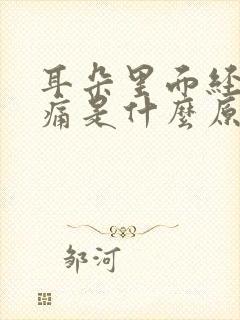 耳朵里而经
痛是什麼原
邹河